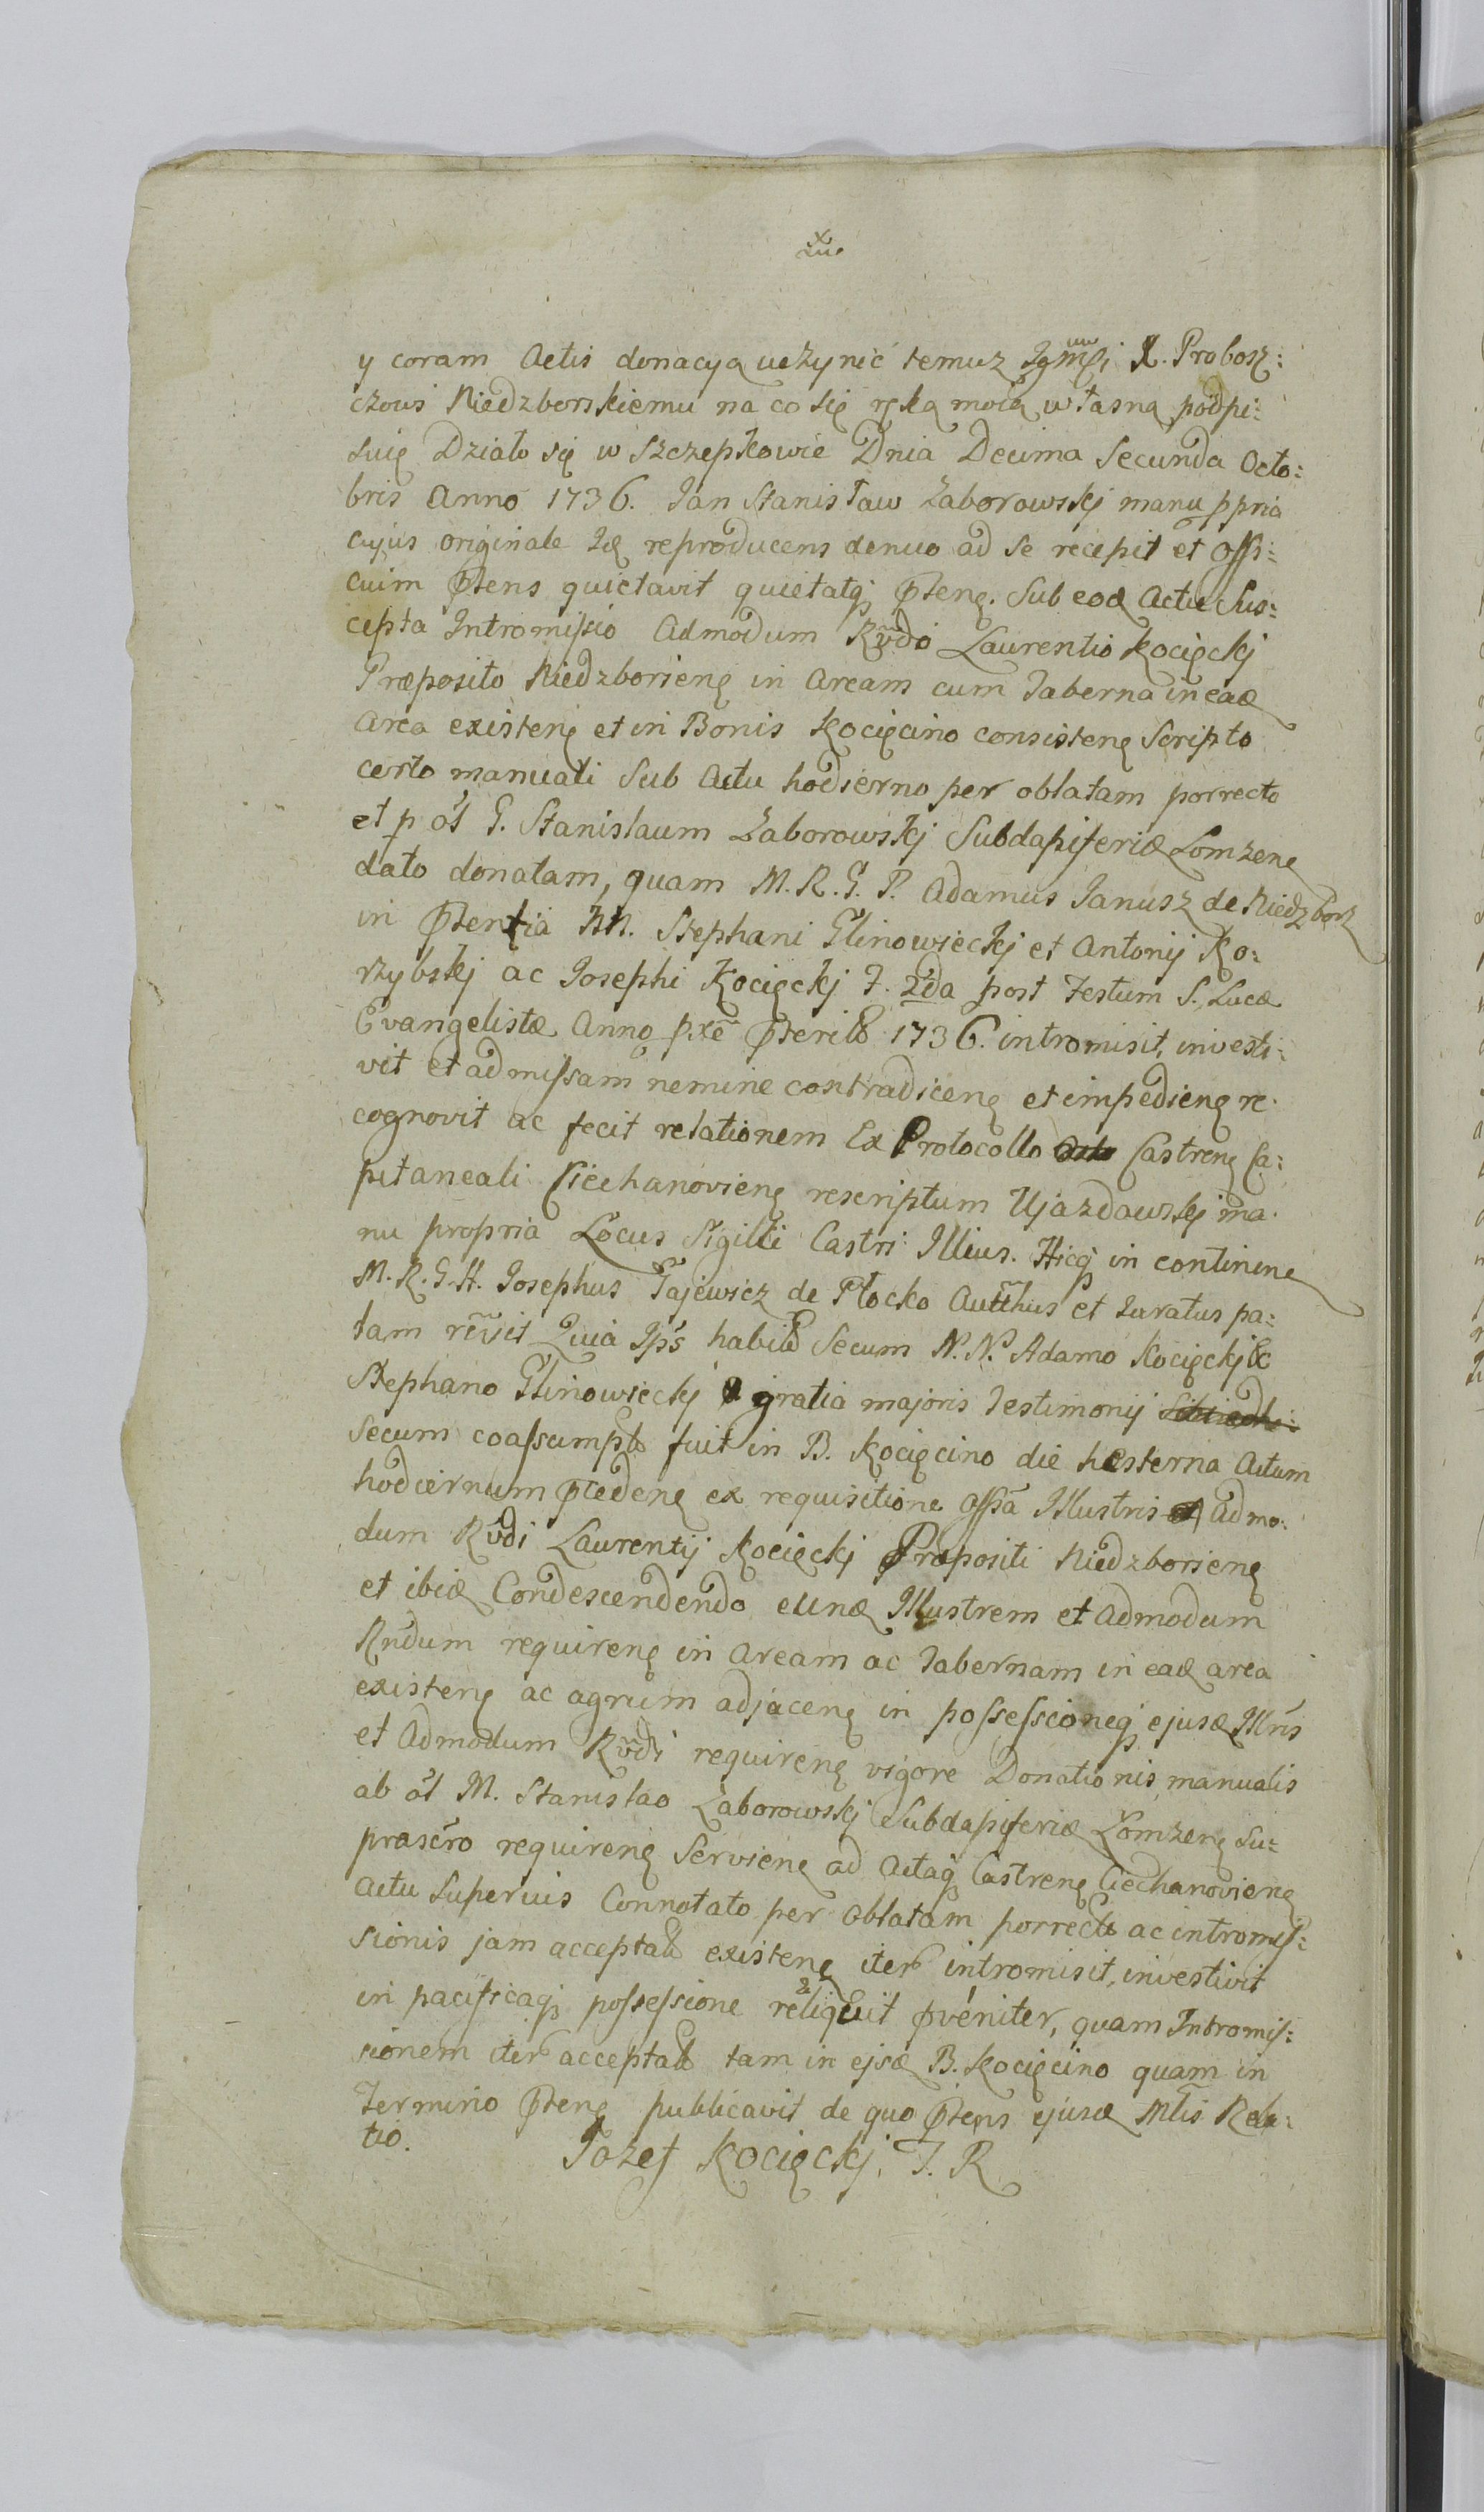 y coram Actis donacyą uczynić temuz Jgmsi X. Probosz:
czowi Niedzborskiemu na co się ręką moią własną podpi:
suię Działo się w Szczepkowie Dnia Decima Secunda Octo:
bris Anno 1736. Jan Stanisław Zaborowskj manu ppria
cujus originale Idę reproducens denuo ad se recepit et Offi:
cium PTens quietavit quietatqj PTenę. Sub eodę Actu Sus:
cepta Intromissio Admodum Rv̄do Laurentio Kocięckj
Præposito Niedzborienę in Aream cum Taberna in eadę
Area existenę et in Bonis Kocięcino consistenę Scripto
certo manuali Sub Actu hodierno per oblatam porrecto
et p oł G. Stanislaum Zaborowskj Subdapiferidę Lomzenę
dato donatam, quam M. R. G. P. Adamus Janusz de Niedzborz
in PTentia NN. Stephani Glinowieckj et Antonij Ko:
rzybskj ac Josephi Kocięckj F. 2da post Festum S. Lucæ
Evangelistæ Anno pxē PTerito 1736. intromisit, investi:
vit et admissam nemine contradicenę et impedienę re:
cognovit ac fecit relationem Ex Protocollo Castrenę Ca:
pitaneali Ciechanovienę rescriptum Ujazdowskj ma:
nu propria Locus Sigilli Castri Illius. Hicqj in continenę
M. R. G. H. Josephus Gajewicz de Płocko Autthus et Juratus pa:
lam rēvit Quia Ips habito Secum N. N. Adamo Kocięckj &
Stephano Glinowieckj gratia majoris Testimonij
Secum coassumpto fuit in B. Kocięcino die hesterna Actum
hodiernum PTedenę ex requisitione Offā Illustris Admo:
dum Rv̄di Laurentij Kocięckj Præpositi Niedzborienę
et ibidę Condescendendo eundę Illustrem et Admodum
Rndum requirenę in Aream ac Tabernam in eadę area
existenę ac agrum adjacenę in possessioneqj ejusdę Illris
et Admodum Rv̄di requirenę vigore Donationis manualis
ab oł M. Stanislao Zaborowskj Subdapiferidę Lomzenę Su:
prascro requirenę Servienę ad Actaqj Castrenę Ciechanovienę
Actu Superius Connotato per Oblatam porrecto ac intromis:
sionis jam acceptato existenę iter intromisit, investivit
in pacificaqj possessione reliquit pveniter, quam Intromis:
sionem iter acceptato tam in ejsdę B. Kocięcino quam in
Termino PTenę publicavit de quo PTens ejusdę Mtis Rela:
tio.
Jozef Kocięckj, J. R